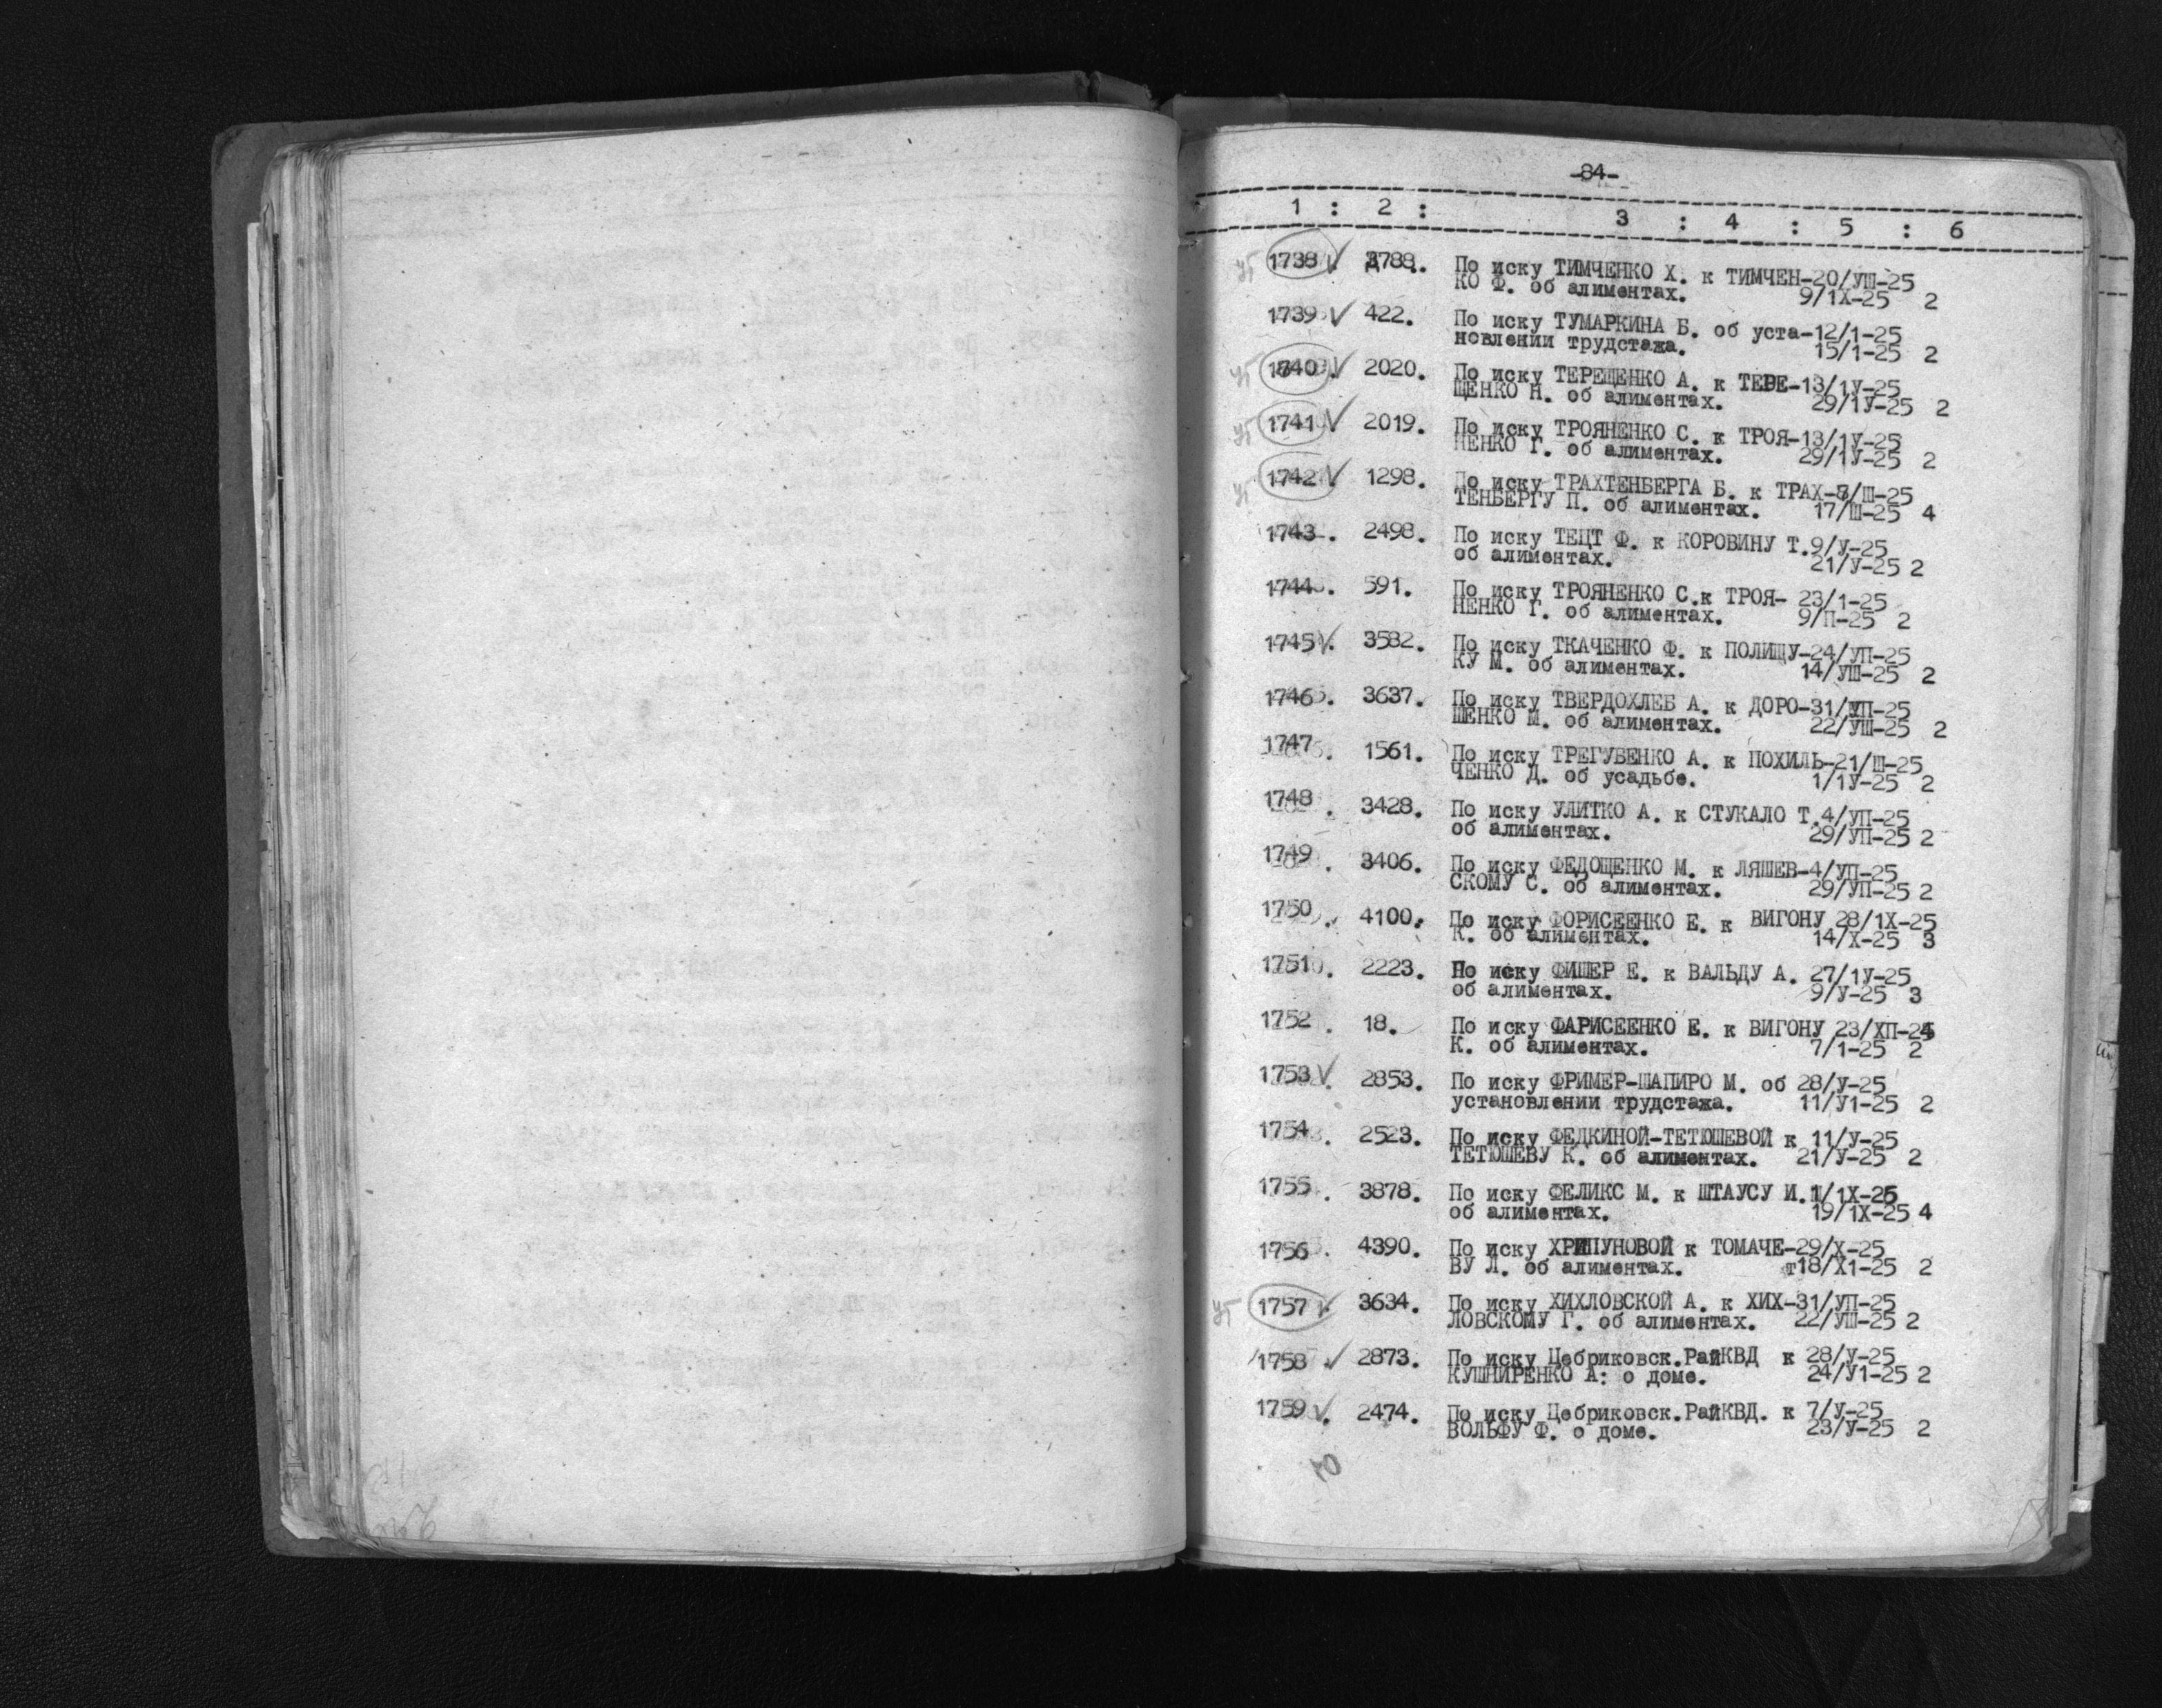 -84-
1 : 2 : 3 : 4 : 5 : 6
1738 V. 3788. По иску ТИМЧЕНКО Х. к ТИМЧЕН-20/УШ-25
КО Ф. об алиментах. 9/1Х-25 2
1739 V 422. По иску ТУМАРКИНА Б. об уста-12/1-25
новлении трудстажа. 15/1-25 2
1740 V 2020. По иску ТЕРЕЩЕНКО А. к ТЕРЕ-13/1У-25
ЩЕНКО Н. об алиментах. 29/1У-25 2
1741 V 2019. По иску ТРОЯНЕНКО С. к ТРОЯ-13/1У-25
НЕНКО Г. об алиментах. 29/1У-25 2
1742 V. 1298. По иску ТРАХТЕНБЕРГА Б. к ТРАХ- /Ш-25
ТЕНБЕРГУ П. об алиментах. 17/Ш-25 4
1743. 2498. По иску ТЕЦТ Ф. к КОРОВИНУ Т.9/У-25
об алиментах. 21/У-25 2
1744. 591. По иску ТРОЯНЕНКО С.к ТРОЯ- 23/1-25
НЕНКО Г. об алиментах. 9/П-25 2
1745 V. 3582. По иску ТКАЧЕНКО Ф. к ПОЛИЩУ-24/УП-25
КУ М. об алиментах. 14/УШ-25 2
1746. 3637. По иску ТВЕРДОХЛЕБ А. к ДОРО-31/УП-25
ШЕНКО М. об алиментах. 22/УШ-25 2
1747. 1561. По иску ТРЕГУБЕНКО А. к ПОХИЛЬ-21/Ш-25
ЧЕНКО Д. об усадьбе. 1/1У-25 2
1748. 3428. По иску УЛИТКО А. к СТУКАЛО Т.4/УП-25
об алиментах. 29/УП-25 2
1749. 3406. По иску ФЕДОЩЕНКО М. к ЛЯШЕВ-4/УП-25
СКОМУ С. об алиментах. 29/УП-25 2
1750. 4100. По иску ФОРИСЕЕНКО Е. к ВИГОНУ 28/1Х-25
К. об алиментах. 14/Х-25 3
1751. 2223. По иску ФИШЕР Е. к ВАЛЬДУ А. 27/1У-25
об алиментах. 9/У-25 3
1752. 18. По иску ФАРИСЕЕНКО Е. к ВИГОНУ 23/ХП-24
К. об алиментах. 7/1-25 2
1753 V. 2853. По иску ФРИМЕР-ШАПИРО М. об 28/У-25
установлении трудстажа. 11/У1-25 2
1754. 2523. По иску ФЕДКИНОЙ-ТЕТЮШЕВОЙ к 11/У-25
ТЕТЮШЕВУ К. об алиментах. 21/У-25 2
1755. 3878. По иску ФЕЛИКС М. к ШТАУСУ И.1/1Х-25
об алиментах. 19/1Х-25 4
1756. 4390. По иску ХРИПУНОВОЙ к ТОМАЧЕ-29/Х-25
ВУ Л. об алиментах. т18/Х1-25 2
1757 V. 3634. По иску ХИХЛОВСКОЙ А. к ХИХ-31/УП-25
ЛОВСКОМУ Г. об алиментах. 22/УШ-25 2
1758 V 2873. По иску Цебриковск.РайКВД к 28/У-25
КУШНИРЕНКО А: о доме. 24/У1-25 2
1759 V. 2474. По иску Цебриковск.РайКВД. к 7/У-25
ВОЛЬФУ Ф. о доме. 23/У-25 2